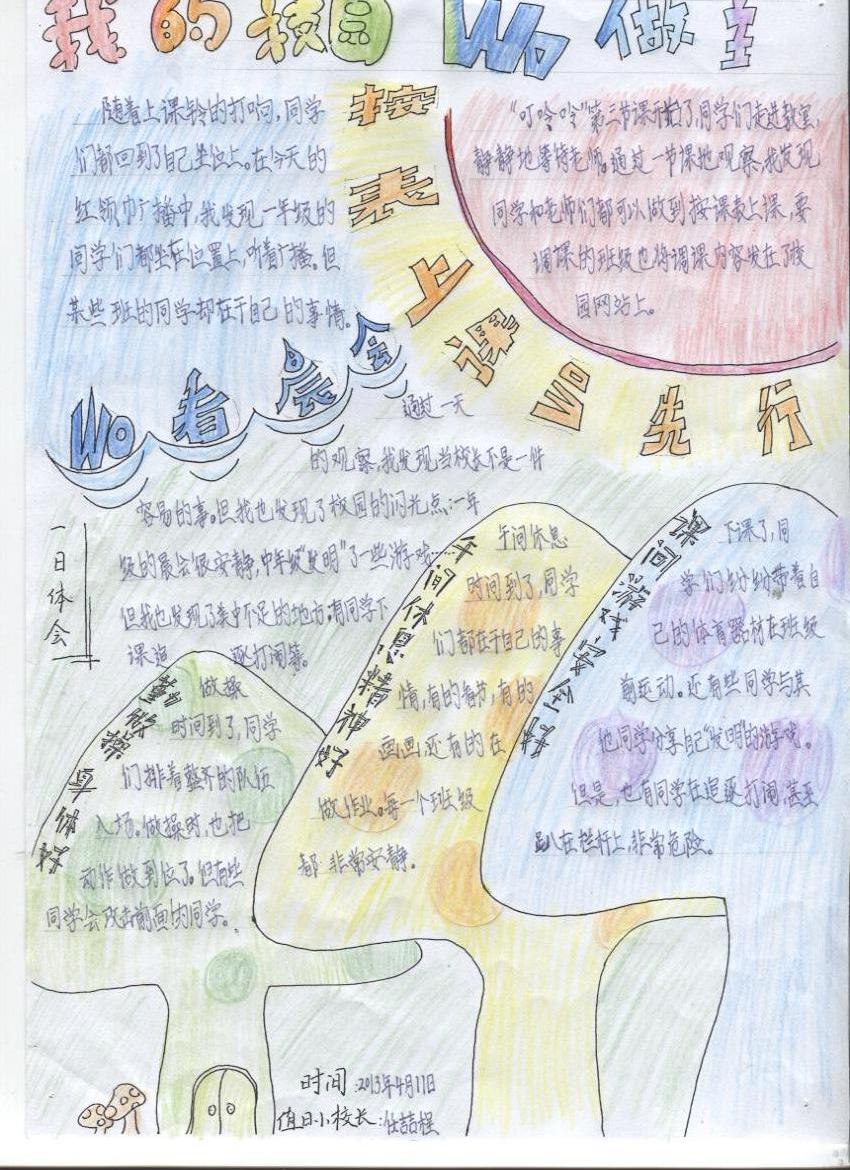 我的校园Wo做主
随着上课铃的打响,同学
们都回到了自己坐位上。在今天的
红领巾广播中,我发现一年级的
同学们都坐在位置上,听着广播。但
某些班的同学却在干自己的事情。
Wo看晨会
按表上课Wo先行
“叮呤呤”第三节课开始了,同学们走进教室,
静静地等待老师。通过一节课地观察,我发现
同学和老师们都可以做到按课表上课,要
调课的班级也将调课内容发在了校
园网站上。
一日体会
通过一天
的观察,我发现当校长不是一件
容易的事。但我也发现了校园的闪光点:一年
级的晨会很安静,中年级“发明”了一些游戏……
但我也发现了美中不足的地方:有同学下
课追逐打闹等。
勤做操身体好
做操
时间到了,同学
们排着整齐的队伍
入场。做操时,也把
动作做到位了。但有些
同学会攻击前面的同学。
午间休息精神好
午间休息
时间到了,同学
们都在干自己的事
情,有的看书,有的
画画,还有的在
做作业。每一个班级
都非常安静。
课间游戏安全
下课了,同
学们纷纷带着自
己的体育器材在班级
前运动。还有些同学与其
他同学分享自己“发明”的游戏。
但是,也有同学在追逐打闹,甚至
趴在栏杆上,非常危险。
时间:2013年4月17日
值日小校长:任喆程